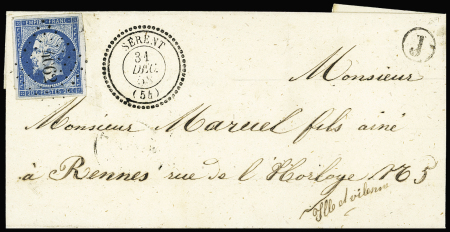 EMPIRE FRANC.
SÉRENT
31
DEC.
58
(54)
J
Monsieur
Monsieur Maruel fils ainé
à Rennes rue de l'Horloge N° 5
Ille et vilaine